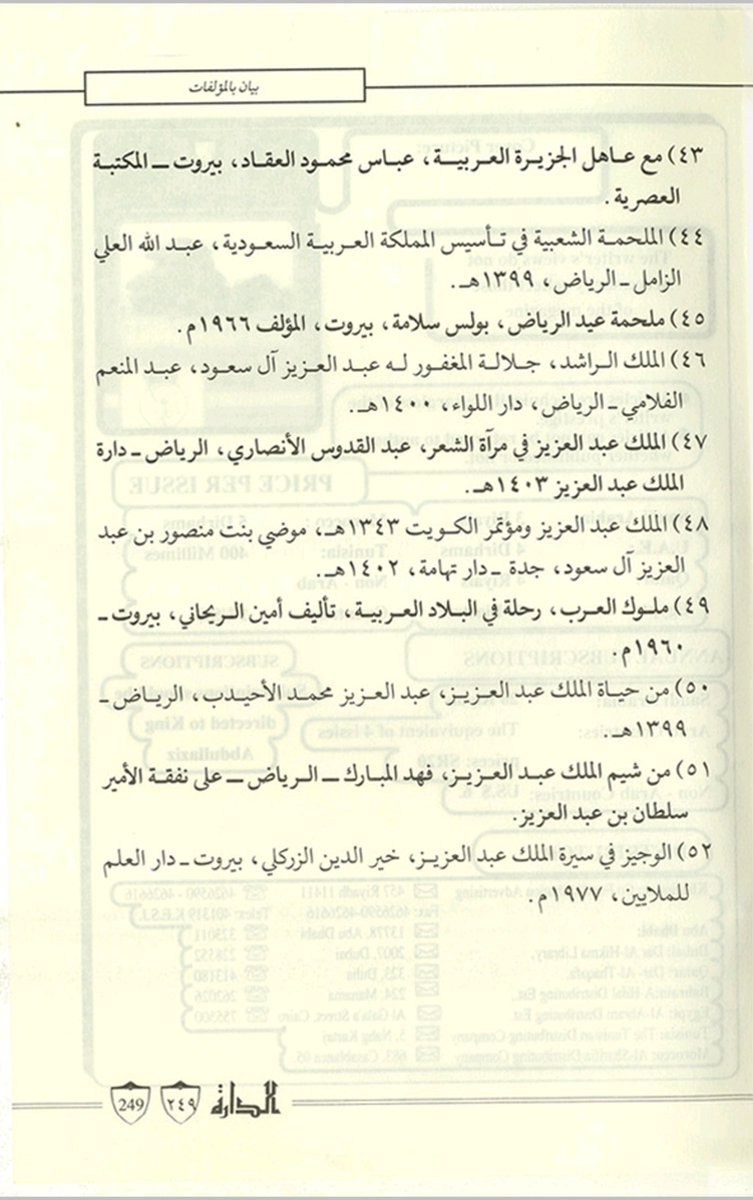 بيان بالمؤلفات
٤٣) مع عاهل الجزيرة العربية، عباس محمود العقاد، بيروت ـ المكتبة
العصرية.
٤٤) الملحمة الشعبية في تأسيس المملكة العربية السعودية، عبد الله العلي
الزامل ـ الرياض، ١٣٩٩هـ.
٤٥) ملحمة عيد الرياض، بولس سلامة، بيروت، المؤلف ١٩٦٦م.
٤٦) الملك الراشد، جلالة المغفور له عبد العزيز آل سعود، عبد المنعم
الغلامي ـ الرياض، دار اللواء، ١٤٠٠هـ.
٤٧) الملك عبد العزيز في مرآة الشعر، عبد القدوس الأنصاري، الرياض ـ دارة
الملك عبد العزيز ١٤٠٣هـ.
٤٨) الملك عبد العزيز ومؤتمر الكويت ١٣٤٣هـ، موضي بنت منصور بن عبد
العزيز آل سعود، جدة ـ دار تهامة، ١٤٠٢هـ.
٤٩) ملوك العرب، رحلة في البلاد العربية، تأليف أمين الريحاني، بيروت ـ
١٩٦٠م.
٥٠) من حياة الملك عبد العزيز، عبد العزيز محمد الأحيدب، الرياض ـ
١٣٩٩هـ.
٥١) من شيم الملك عبد العزيز، فهد المبارك ـ الرياض ـ على نفقة الأمير
سلطان بن عبد العزيز.
٥٢) الوجيز في سيرة الملك عبد العزيز، خير الدين الزركلي، بيروت ـ دار العلم
للملايين، ١٩٧٧م.
الدارة ٢٤٩ 249